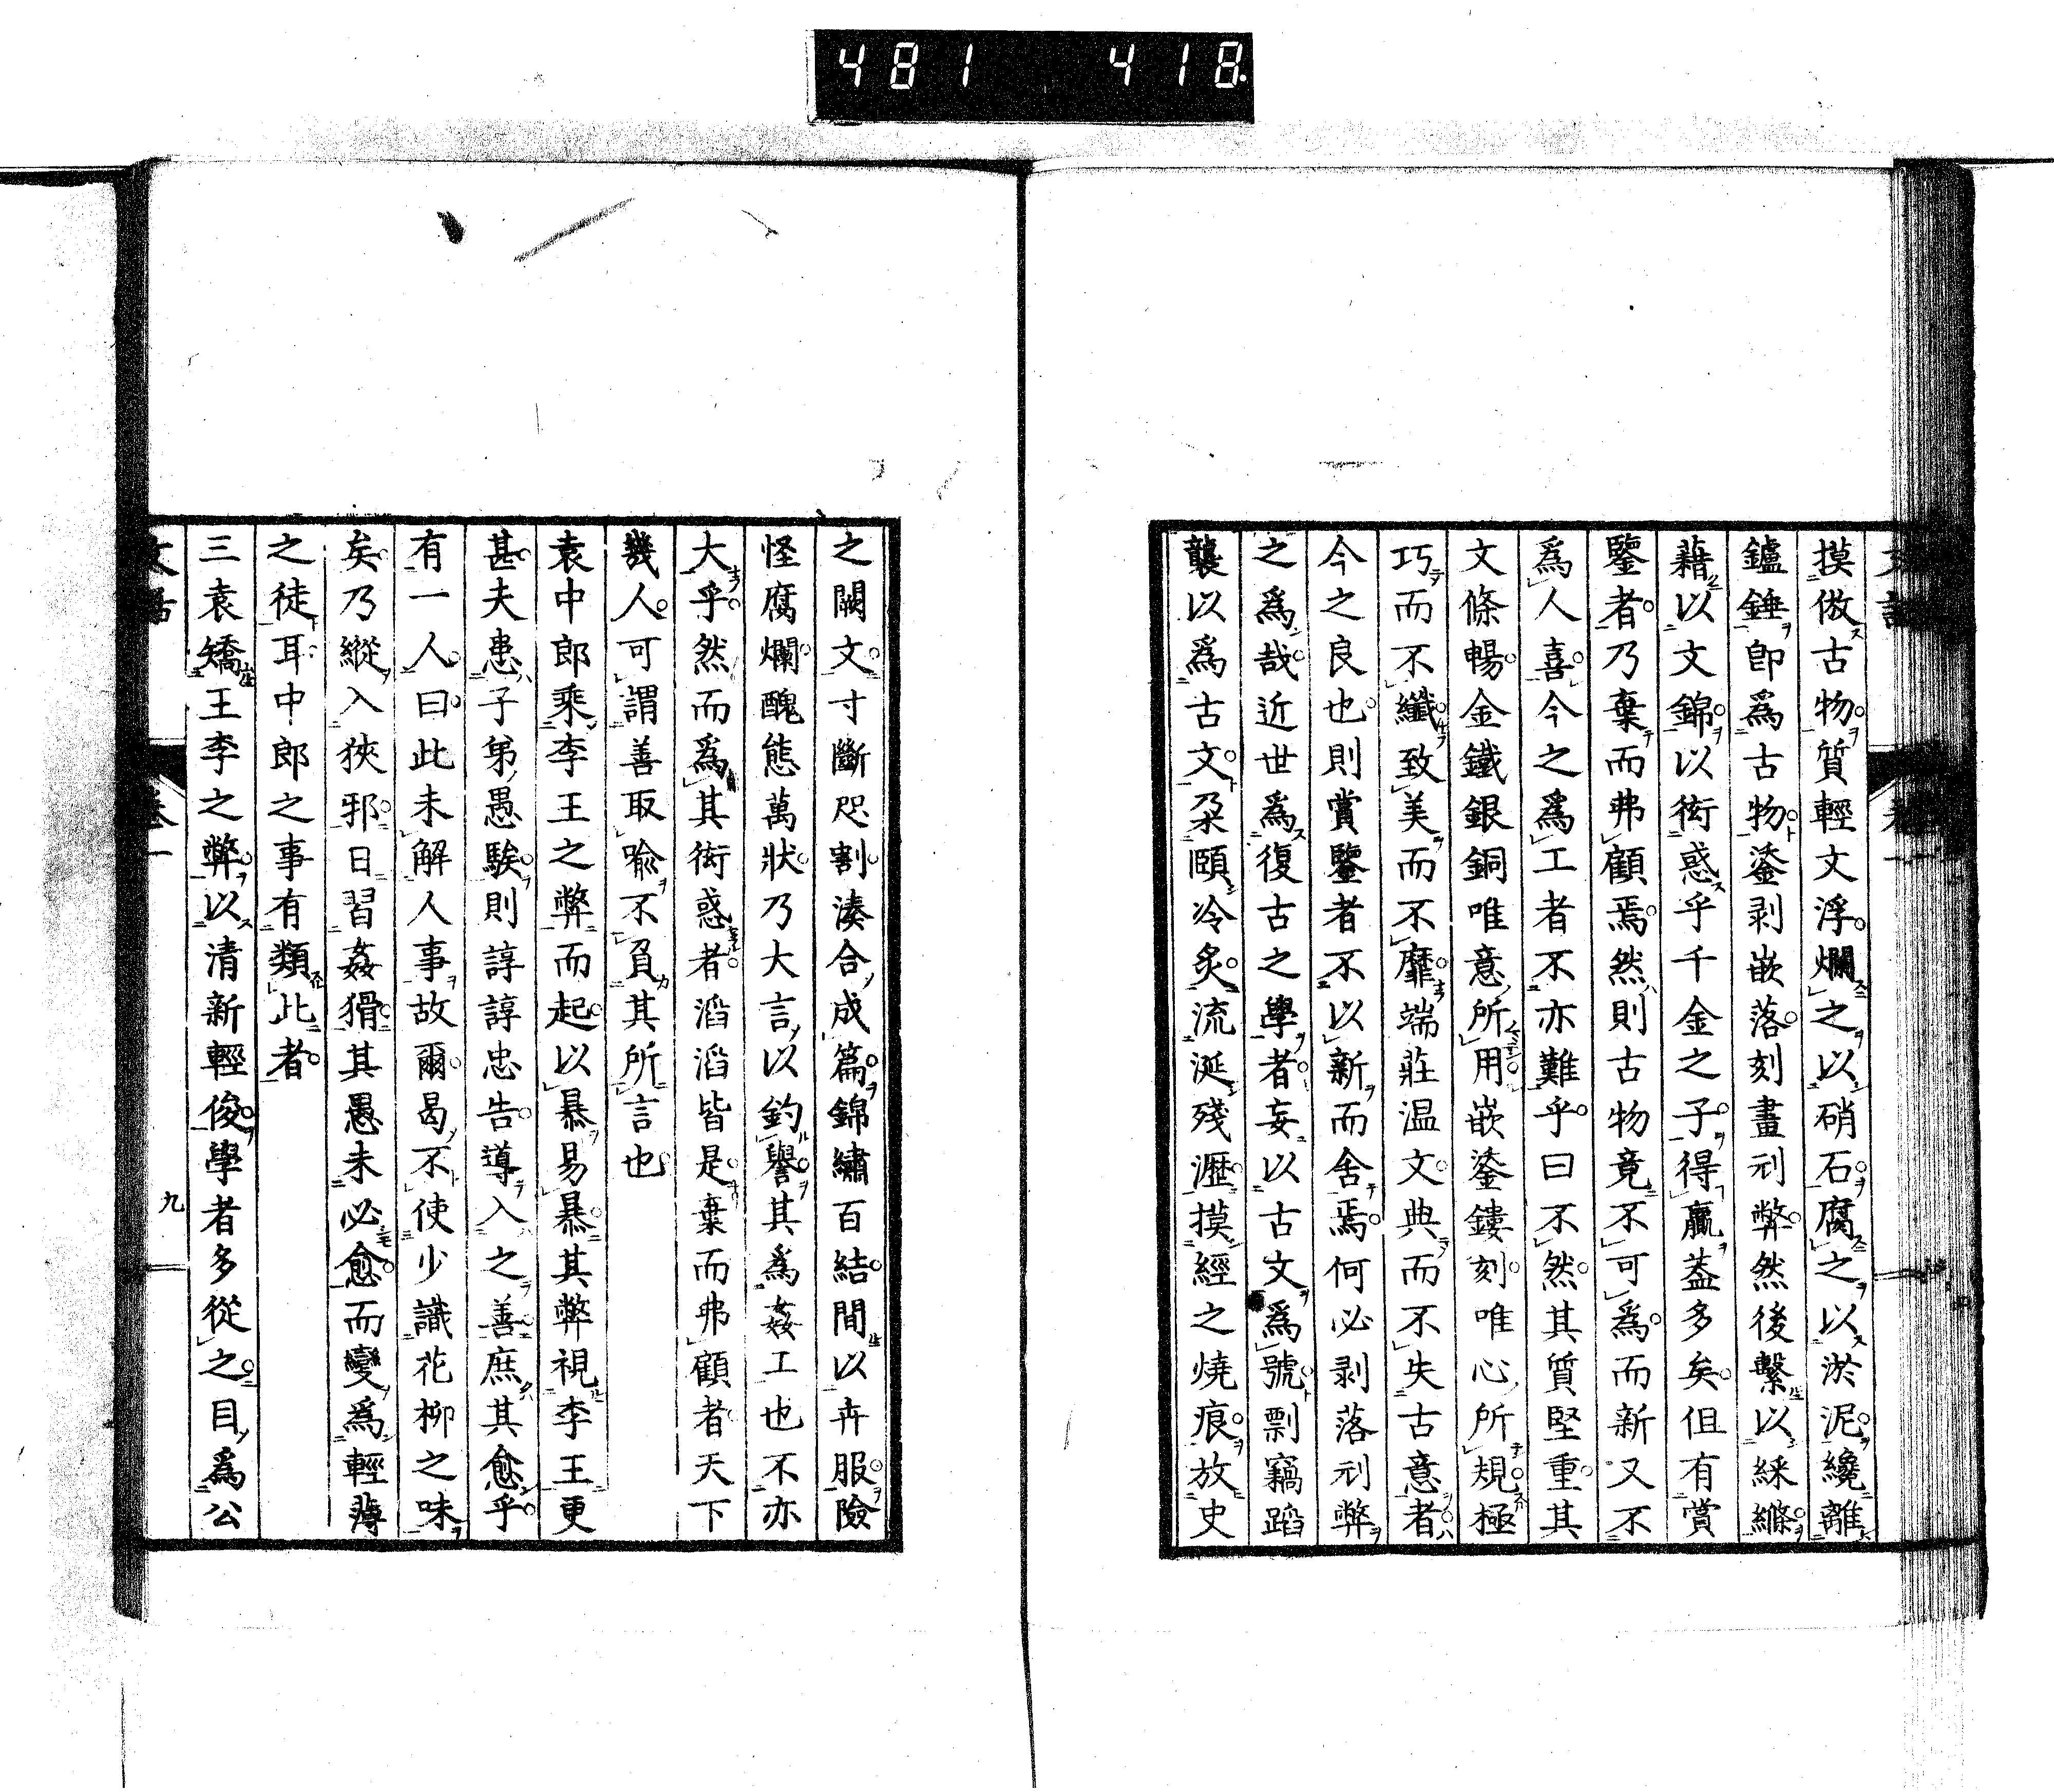 481 418
摸倣古物質輕文浮爛之以硝石腐之以淤泥纔離
鑪錘卽爲古物鋈剥嵌落刻畫刓弊然後繫以綵縧
藉以文錦以衒惑乎千金之子得贏葢多矣但有賞
鑒者乃棄而弗顧焉然則古物竟不可爲而新又不
爲人喜今之爲工者不亦難乎曰不然其質堅重其
文條暢金鐵銀銅唯意所用嵌鋈鏤刻唯心所規極
巧而不纖致美而不靡端莊温文典而不失古意者
今之良也則賞鑒者不以新而舍焉何必剥落刓弊
之爲哉近世爲復古之學者妄以古文爲號剽竊蹈
襲以爲古文朶頤冷炙流涎殘瀝摸經之燒痕放史
之闕文寸斷咫割湊合成篇錦繡百結間以卉服險
怪腐爛醜態萬狀乃大言以釣譽其爲姦工也不亦
大乎然而爲其衒惑者滔滔皆是棄而弗顧者天下
幾人可謂善取喩不負其所言也
袁中郎乘李王之弊而起以暴易暴其弊視李王更
甚夫患子弟愚騃則諄諄忠告導入之善庶其愈乎
有一人曰此未解人事故爾曷不使少識花柳之味
矣乃縱入狹邪日習姦猾其愚未必愈而變爲輕薄
之徒耳中郎之事有類此者
三袁矯王李之弊以清新輕俊學者多從之目爲公
卷一
九